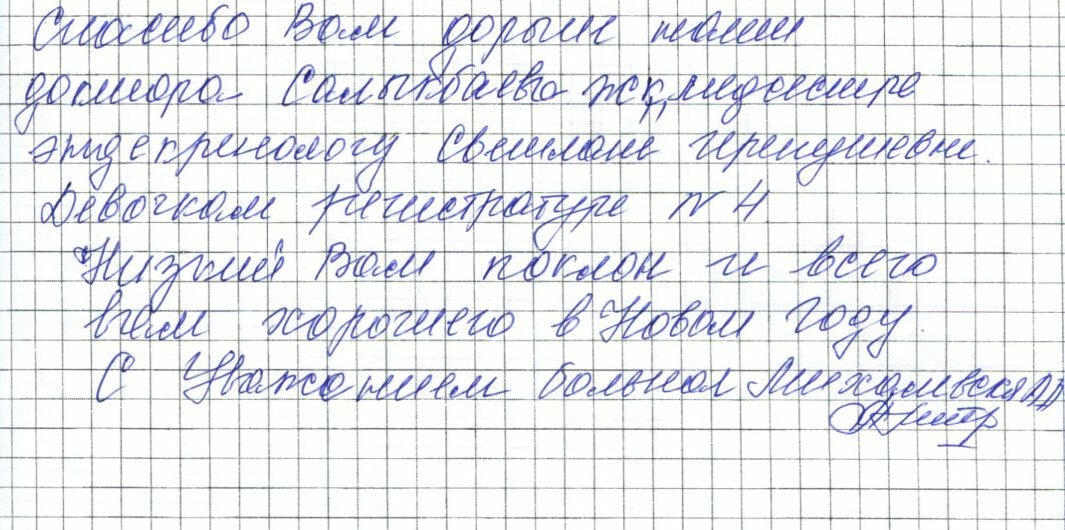 Спасибо Вам дорыги наши
доктора Салыкбаева ЖК, медсестре
эндекренологу Светлане
Девочкам регистратуре N 4
Низкий Вам поклон и всего
Вам хорошего в Новом Году.
С Уважением больная Михалевская